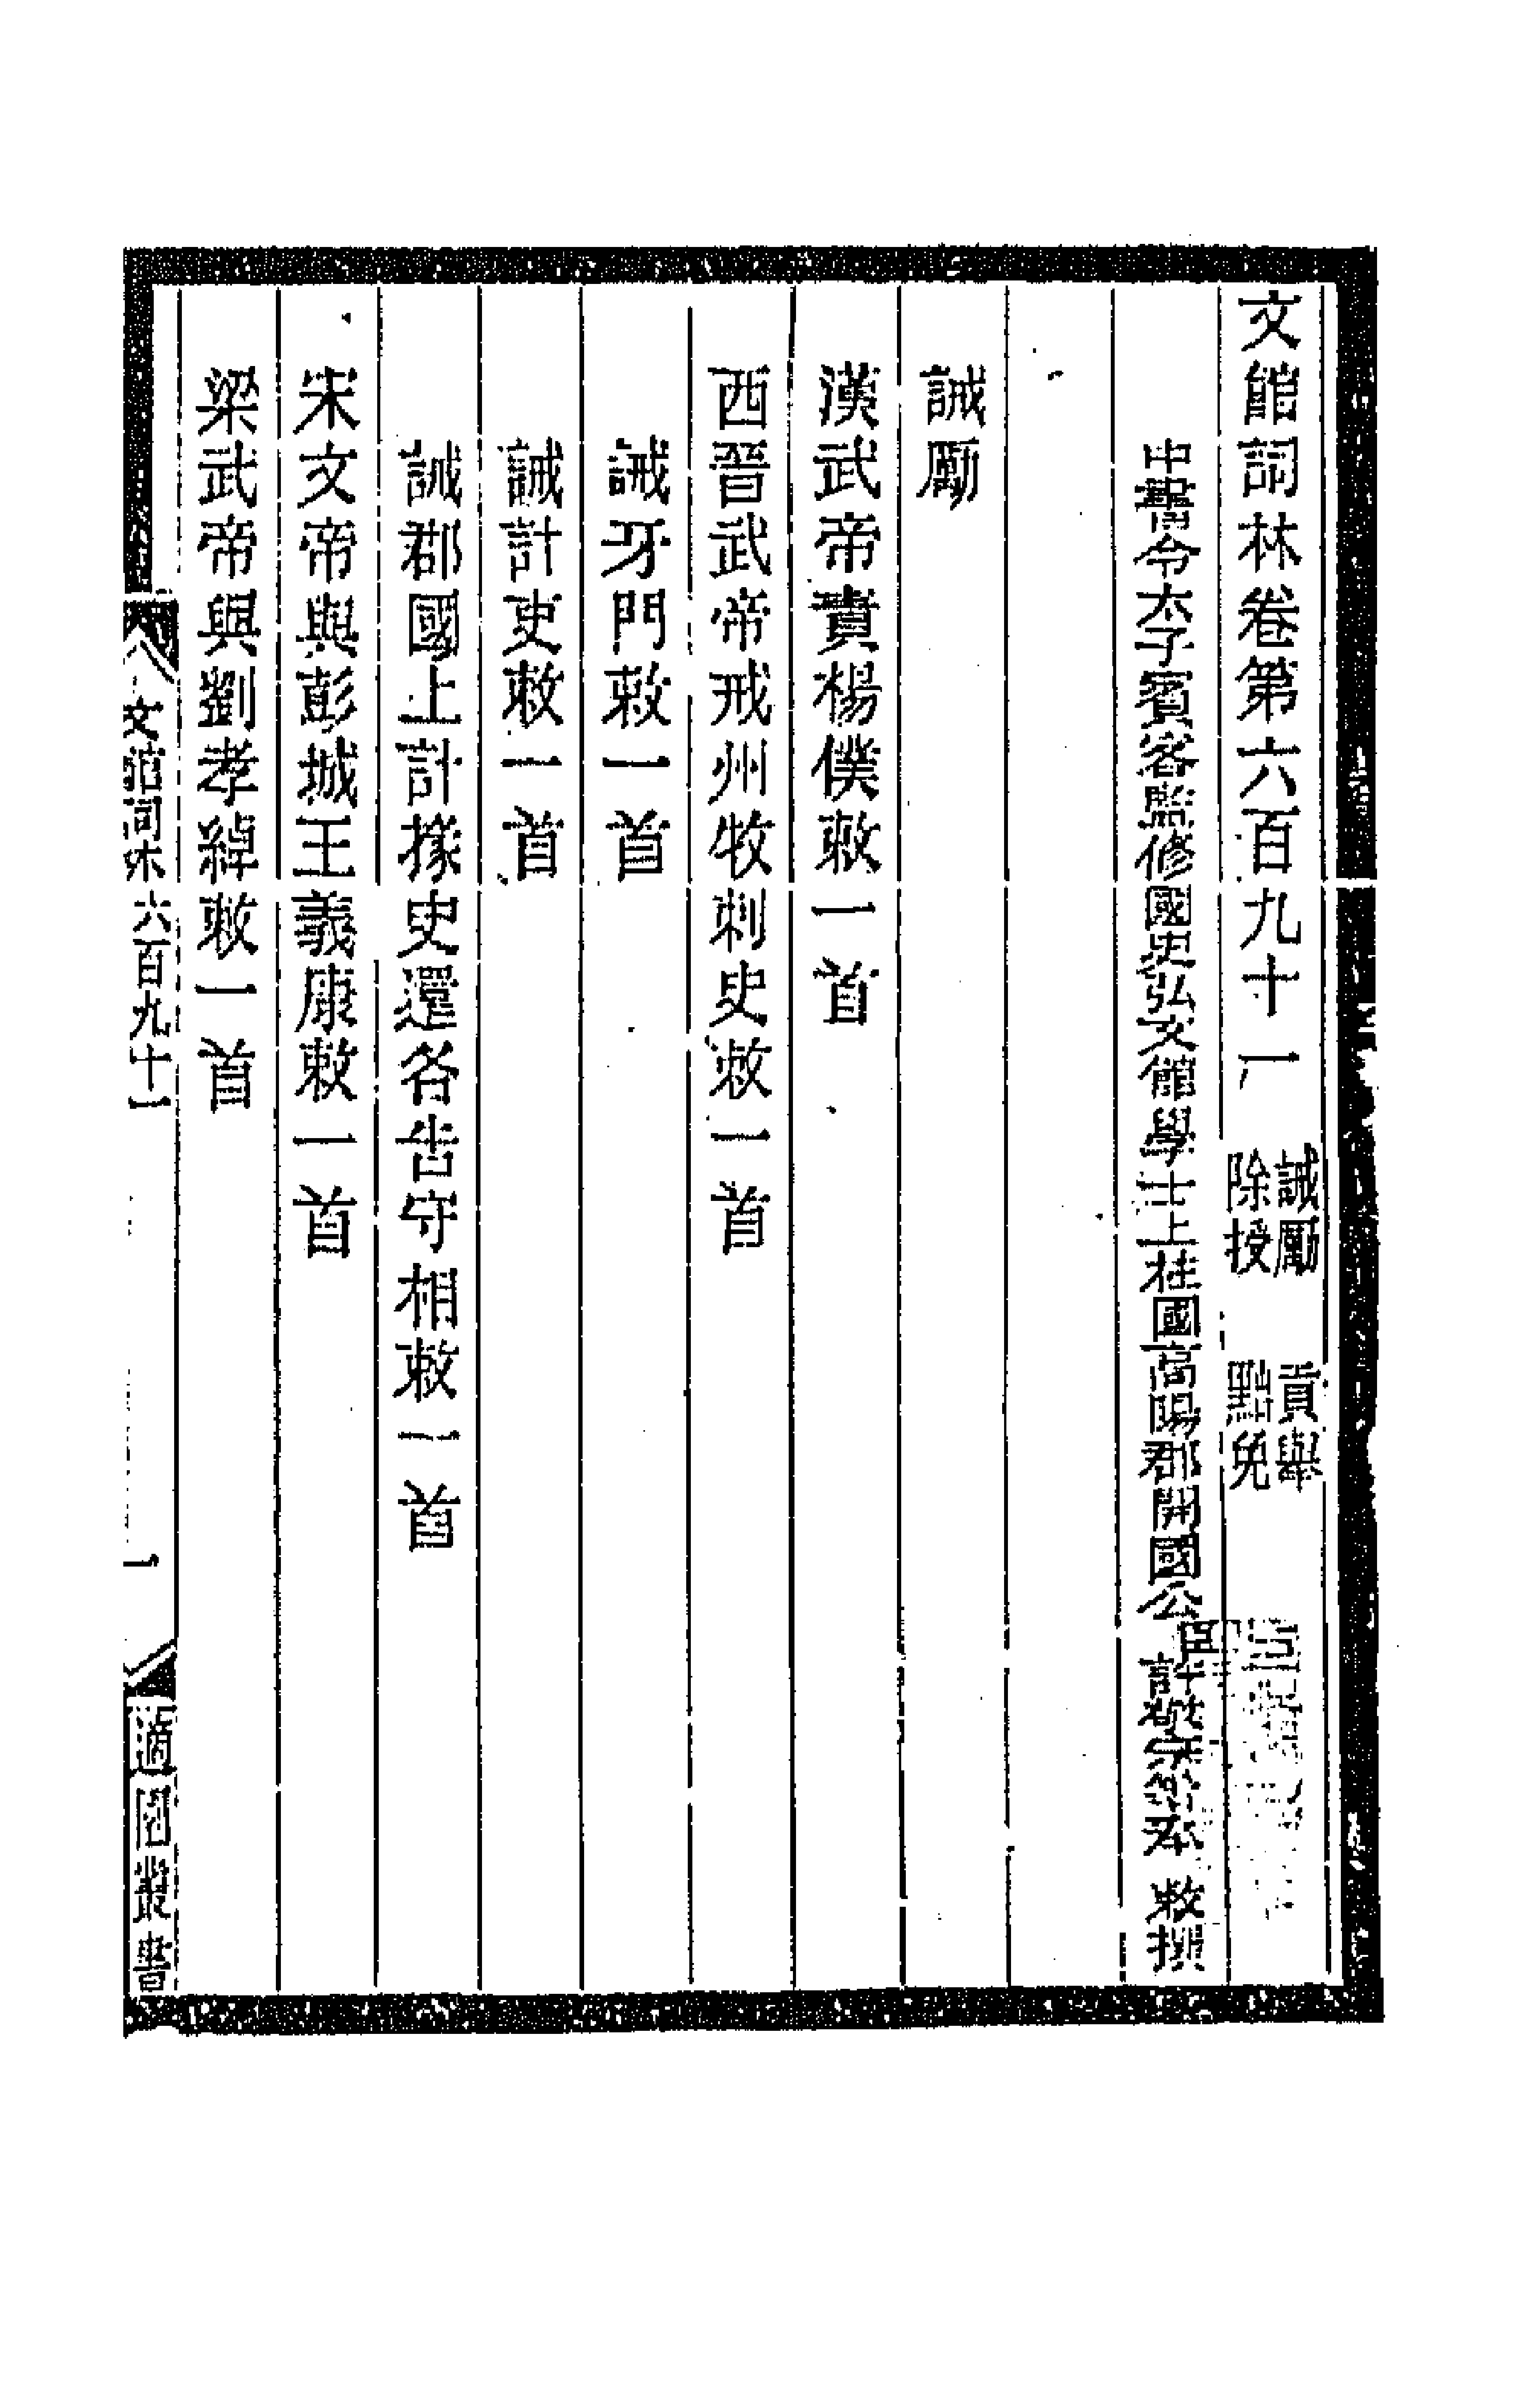 文館詞林卷第六百九十一　誡勵　貢舉　除授　黜免
中書令太子賓客監修國史弘文館學士上柱國高陽郡開國公臣許敬宗等奉　敕撰
誡勵
漢武帝責楊僕敕一首
西晉武帝戒州牧刺史敕一首
誡牙門敕一首
誡計吏敕一首
誡郡國上計掾史還各告守相敕一首
宋文帝與彭城王義康敕一首
梁武帝與劉孝綽敕一首
文館詞林六百九十一　一　適園叢書